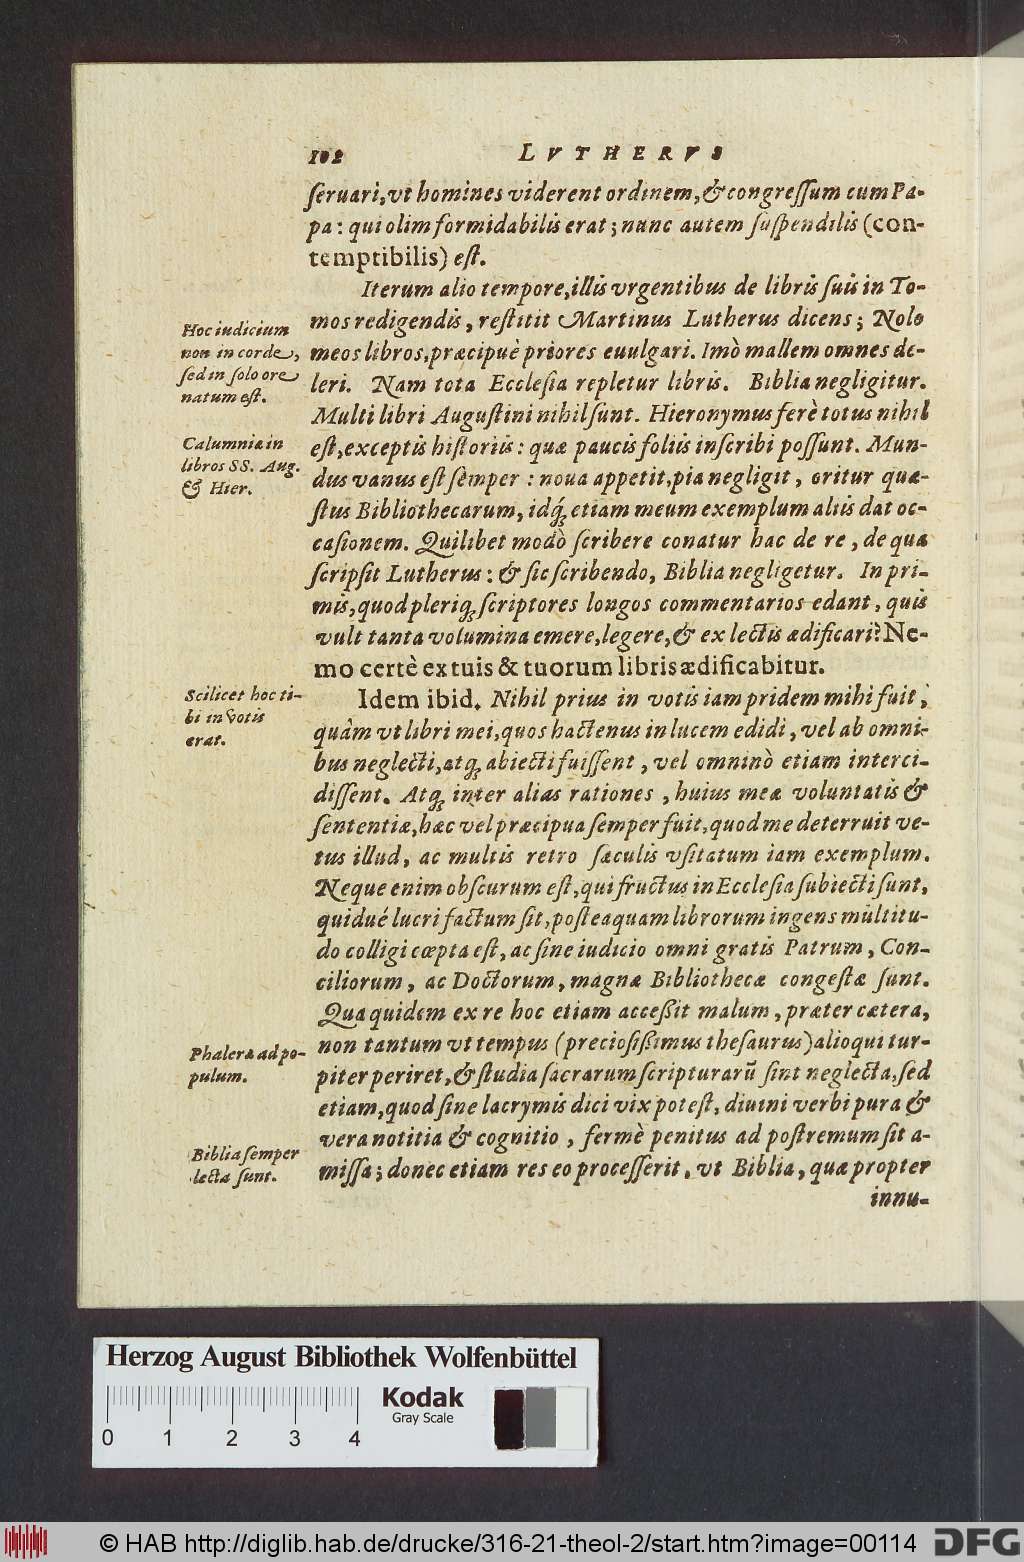 102 LVTHERVS
ſeruari, vt homines viderent ordinem, & congreſſum cum Pa-
pa: qui olim formidabilis erat; nunc autem ſuſpendilis (con-
temptibilis) eſt.
Iterum alio tempore, illis vrgentibus de libris ſuis in To-
mos redigendis, reſtitit Martinus Lutherus dicens; Nolo
meos libros, præcipuè priores euulgari. Imò mallem omnes de-
leri. Nam tota Eccleſia repletur libris. Biblia negligitur.
Multi libri Auguſtini nihil ſunt. Hieronymus ferè totus nihil
eſt, exceptis hiſtoriis: quæ paucis foliis inſcribi poſſunt. Mun-
dus vanus eſt ſemper: noua appetit, pia negligit, oritur quæ-
ſtus Bibliothecarum, idq́; etiam meum exemplum aliis dat oc-
caſionem. Quilibet modò ſcribere conatur hac de re, de qua
ſcripſit Lutherus: & ſic ſcribendo, Biblia negligetur. In pri-
mis, quod pleriq; ſcriptores longos commentarios edant, quis
vult tanta volumina emere, legere, & ex lectis ædificari? Ne-
mo certè ex tuis & tuorum libris ædificabitur.
Idem ibid. Nihil prius in votis iam pridem mihi fuit,
quàm vt libri mei, quos hactenus in lucem edidi, vel ab omni-
bus neglecti, atq; abiecti fuiſſent, vel omninò etiam interci-
diſſent. Atq; inter alias rationes, huius meæ voluntatis &
ſententiæ, hæc vel præcipua ſemper fuit, quod me deterruit ve-
tus illud, ac multis retro ſæculis vſitatum iam exemplum.
Neque enim obſcurum eſt, qui fructus in Eccleſia ſubiecti ſunt,
quidué lucri factum ſit, poſteaquam librorum ingens multitu-
do colligi cœpta eſt, ac ſine iudicio omni gratis Patrum, Con-
ciliorum, ac Doctorum, magnæ Bibliothecæ congeſtæ ſunt.
Qua quidem ex re hoc etiam acceßit malum, præter cætera,
non tantum vt tempus (precioſißimus theſaurus) alioqui tur-
piter periret, & ſtudia ſacrarum ſcripturarū ſint neglecta, ſed
etiam, quod ſine lacrymis dici vix poteſt, diuini verbi pura &
vera notitia & cognitio, fermè penitus ad poſtremum ſit a-
miſſa; donec etiam res eo proceſſerit, vt Biblia, quæ propter
innu-
Hoc iudicium
non in corde,
ſed in ſolo ore
natum eſt.
Calumnia in
libros SS. Aug.
& Hier.
Scilicet hoc ti-
bi in votis
erat.
Phaleræ ad po-
pulum.
Biblia ſemper
lecta ſunt.
Herzog August Bibliothek Wolfenbüttel
Kodak
Gray Scale
0 1 2 3 4
© HAB http://diglib.hab.de/drucke/316-21-theol-2/start.htm?image=00114
DFG